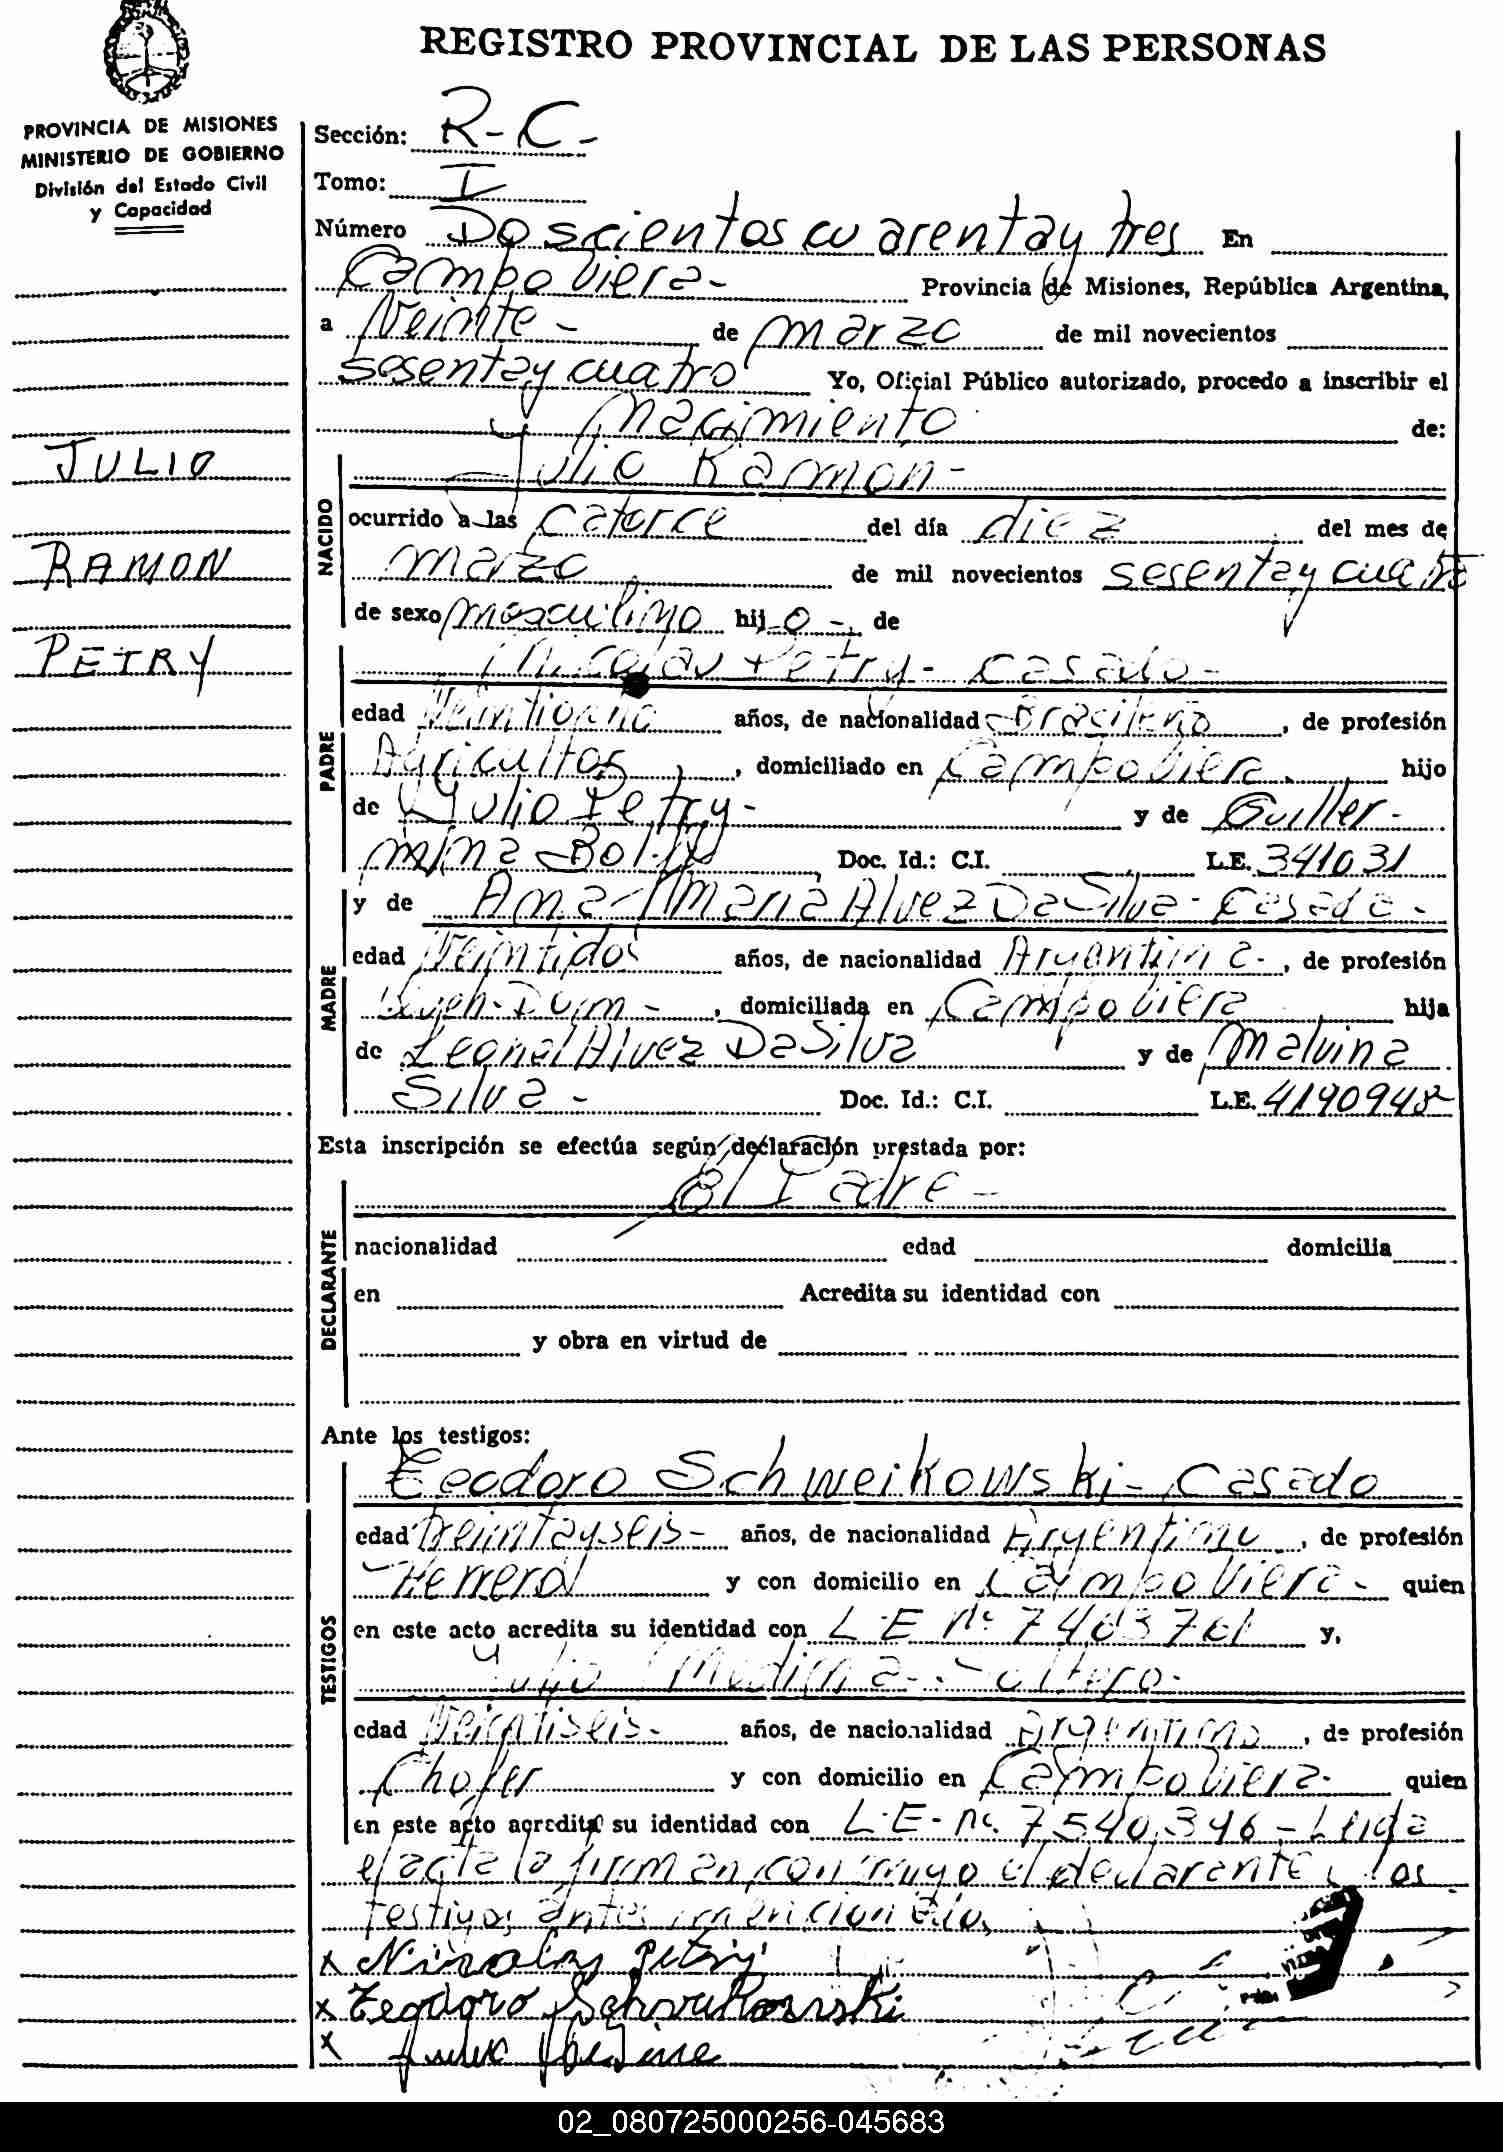 REGISTRO PROVINCIAL DE LAS PERSONAS
PROVINCIA DE MISIONES
MINISTERIO DE GOBIERNO
División del Estado Civil
y Capacidad
JULIO
RAMON
PETRY
Sección: R-C-
Tomo: I
Número Doscientos cuarentay tres En
Campo Viera- Provincia de Misiones, República Argentina,
a Veinte- de marzo de mil novecientos
sesentay cuatro Yo, Oficial Público autorizado, procedo a inscribir el
Nacimiento de:
NACIDO
Julio Ramon-
ocurrido a las catorce del día diez del mes de
marzo de mil novecientos sesentay cuatro
de sexo masculino hijo-, de
PADRE
Nicolas Petry- casado-
edad Veintiocho años, de nacionalidad Brasileña, de profesión
Agricultor, domiciliado en Campo Viera hijo
de Julio Petry- y de Guiller-
mina Doc. Id.: C.I. L.E. 341031
MADRE
y de Ana Maria Alvez Da Silva- Casada-
edad Veintidos años, de nacionalidad Argentina-, de profesión
-, domiciliada en Campo Viera hija
de Leonel Alvez Da Silva y de Malvina
Silva- Doc. Id.: C.I. L.E. 4190948
Esta inscripción se efectúa según declaración prestada por:
DECLARANTE
El Padre-
nacionalidad edad domicilia
en Acredita su identidad con
y obra en virtud de
Ante los testigos:
TESTIGOS
Teodoro Schweikowski- Casado
edad treintayseis- años, de nacionalidad Argentino, de profesión
Herrero y con domicilio en Campo Viera- quien
en este acto acredita su identidad con L-E nº 7403761 y,
Julio Medina- Soltero-
edad Veintiseis- años, de nacionalidad Argentino, de profesión
Chofer y con domicilio en Campo Viera- quien
en este acto acredita su identidad con L-E- nº 7.540.346- Leida
el acta la firman con migo el declarante y los
testigos antes mencionado,
x Nicolas Petry
x Teodoro Schweikowski
x Julio Medina
02_080725000256-045683